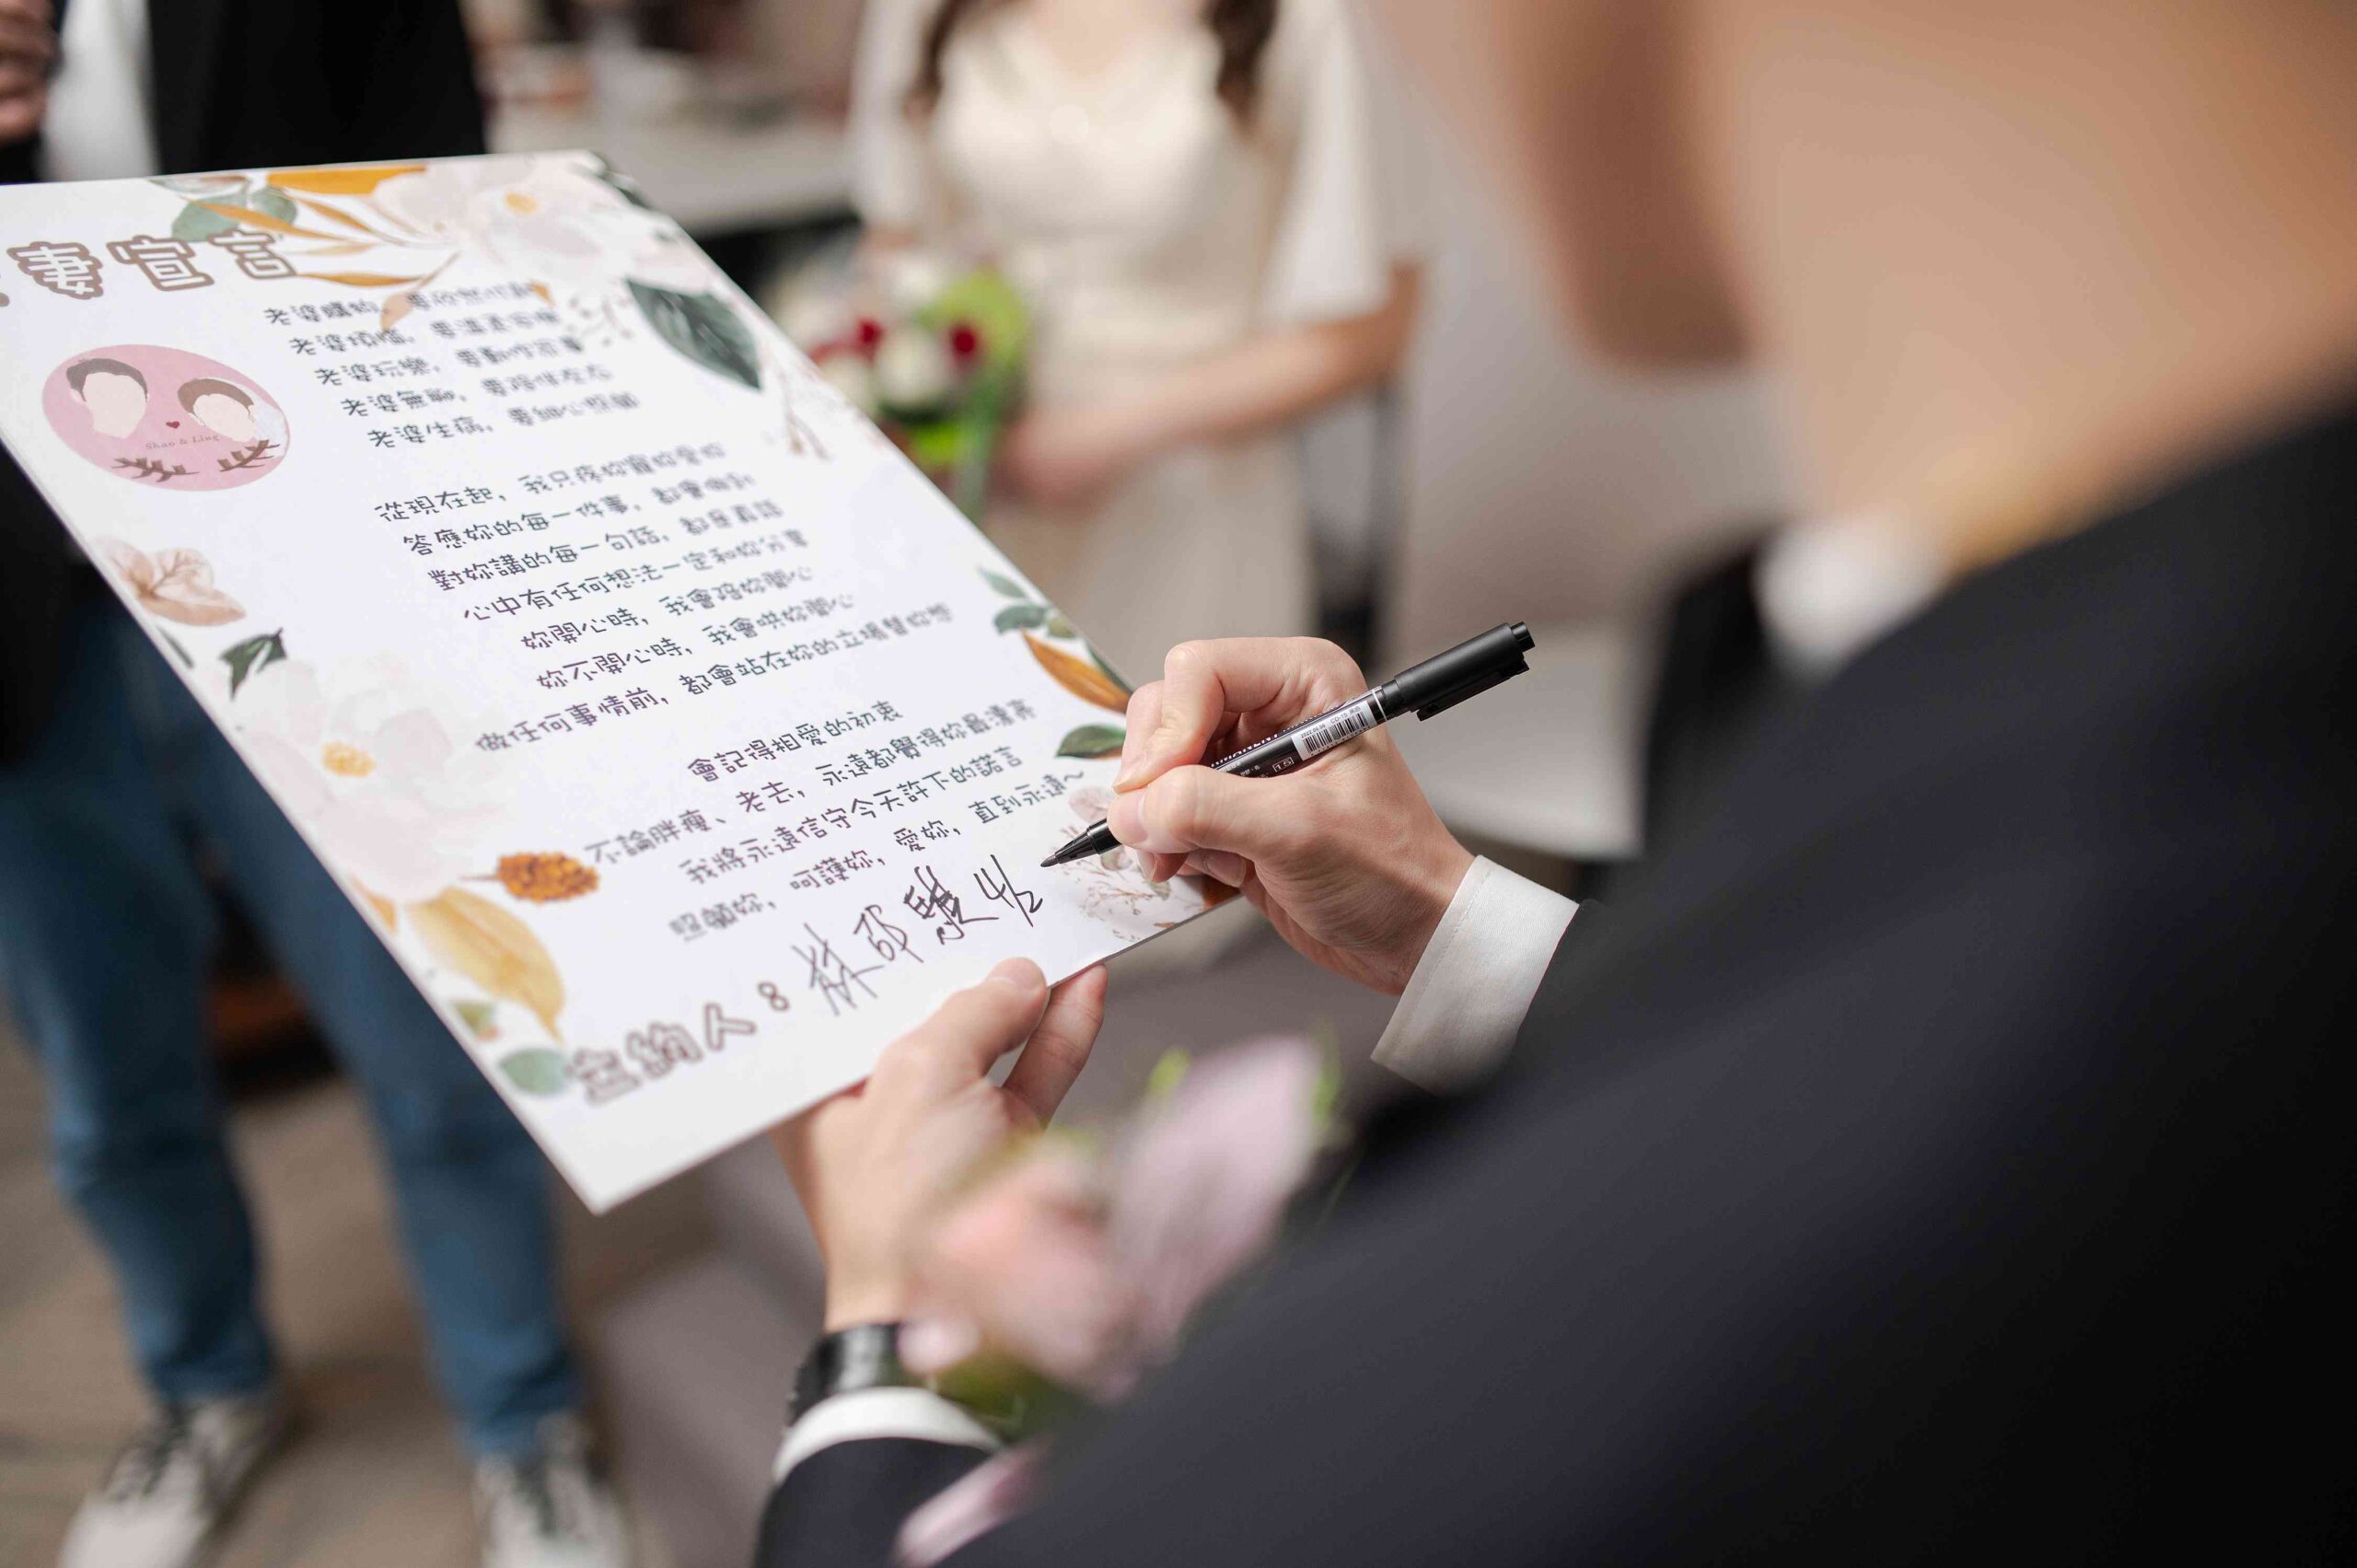 妻宣言
老婆購物，要欣然付款
老婆煩惱，要溫柔安撫
老婆玩樂，要動作
老婆無聊，要陪伴左右
老婆生病，要細心照顧
Shao & Ling
從現在起，我只疼妳寵妳愛妳
答應妳的每一件事，都會做到
對妳講的每一句話，都是真話
心中有任何想法一定和妳分享
妳開心時，我會陪妳開心
妳不開心時，我會哄妳開心
做任何事情前，都會站在妳的立場替妳想
會記得相愛的初衷
不論胖瘦、老去，永遠都覺得妳最漂亮
我將永遠信守今天許下的諾言
照顧妳，呵護妳，愛妳，直到永遠~
立約人：林
1.5